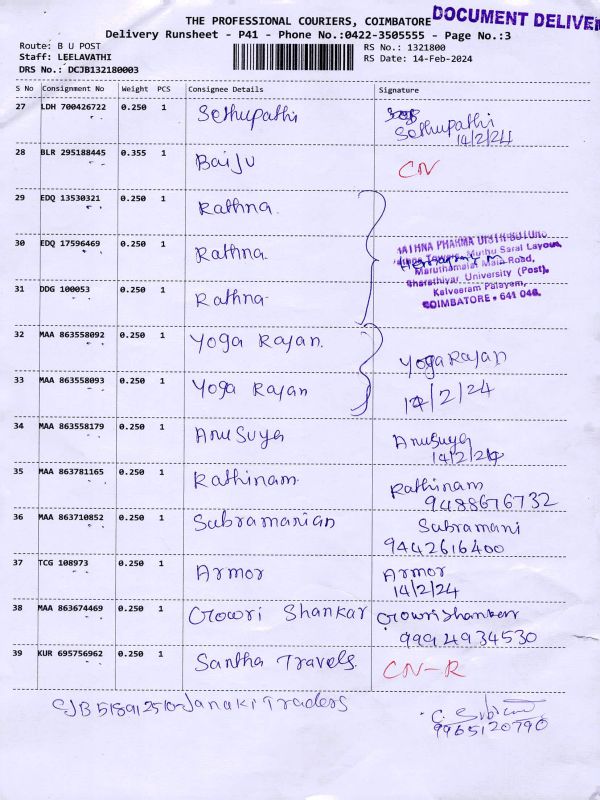 THE PROFESSIONAL COURIERS, COIMBATORE
DOCUMENT DELIVER
Delivery Runsheet - P41 - Phone No.:0422-3505555 - Page No.:3
Route: B U POST
RS No.: 1321800
Staff: LEELAVATHI
RS Date: 14-Feb-2024
DRS No.: DCJB132180003
S No Consignment No Weight PCS Consignee Details Signature
27 LDH 700426722 0.250 1 Sethupathi
Sethupathi
14/2/24
28 BLR 295188445 0.355 1 Baiju CN
29 EDQ 13530321 0.250 1 Rathna.
30 EDQ 17596469 0.250 1 Rathna.
RATHNA PHARMA DISTRIBUTORS
Towers, Muthu Saral Layout,
Maruthamalai Main Road,
Bharathiyar University (Post),
Kalveeram Palayam,
COIMBATORE - 641 046.
31 DDG 100053 0.250 1 Rathna-
32 MAA 863558092 0.250 1 Yoga Rajan.
Yoga Rajan
14/2/24
33 MAA 863558093 0.250 1 Yoga Rajan
34 MAA 863558179 0.250 1 Anusuya Anusuya
14/2/24
35 MAA 863781165 0.250 1 Rathinam. Rathinam
9488676732
36 MAA 863710852 0.250 1 Subramanian Subramani
9442616400
37 TCG 108973 0.250 1 Armor Armor
14/2/24
38 MAA 863674469 0.250 1 Gowri Shankar Gowri Shanker
9994934530
39 KUR 695756962 0.250 1 Santha Travels. CN-R
CJB 518912510-Janaki Traders
9965120790